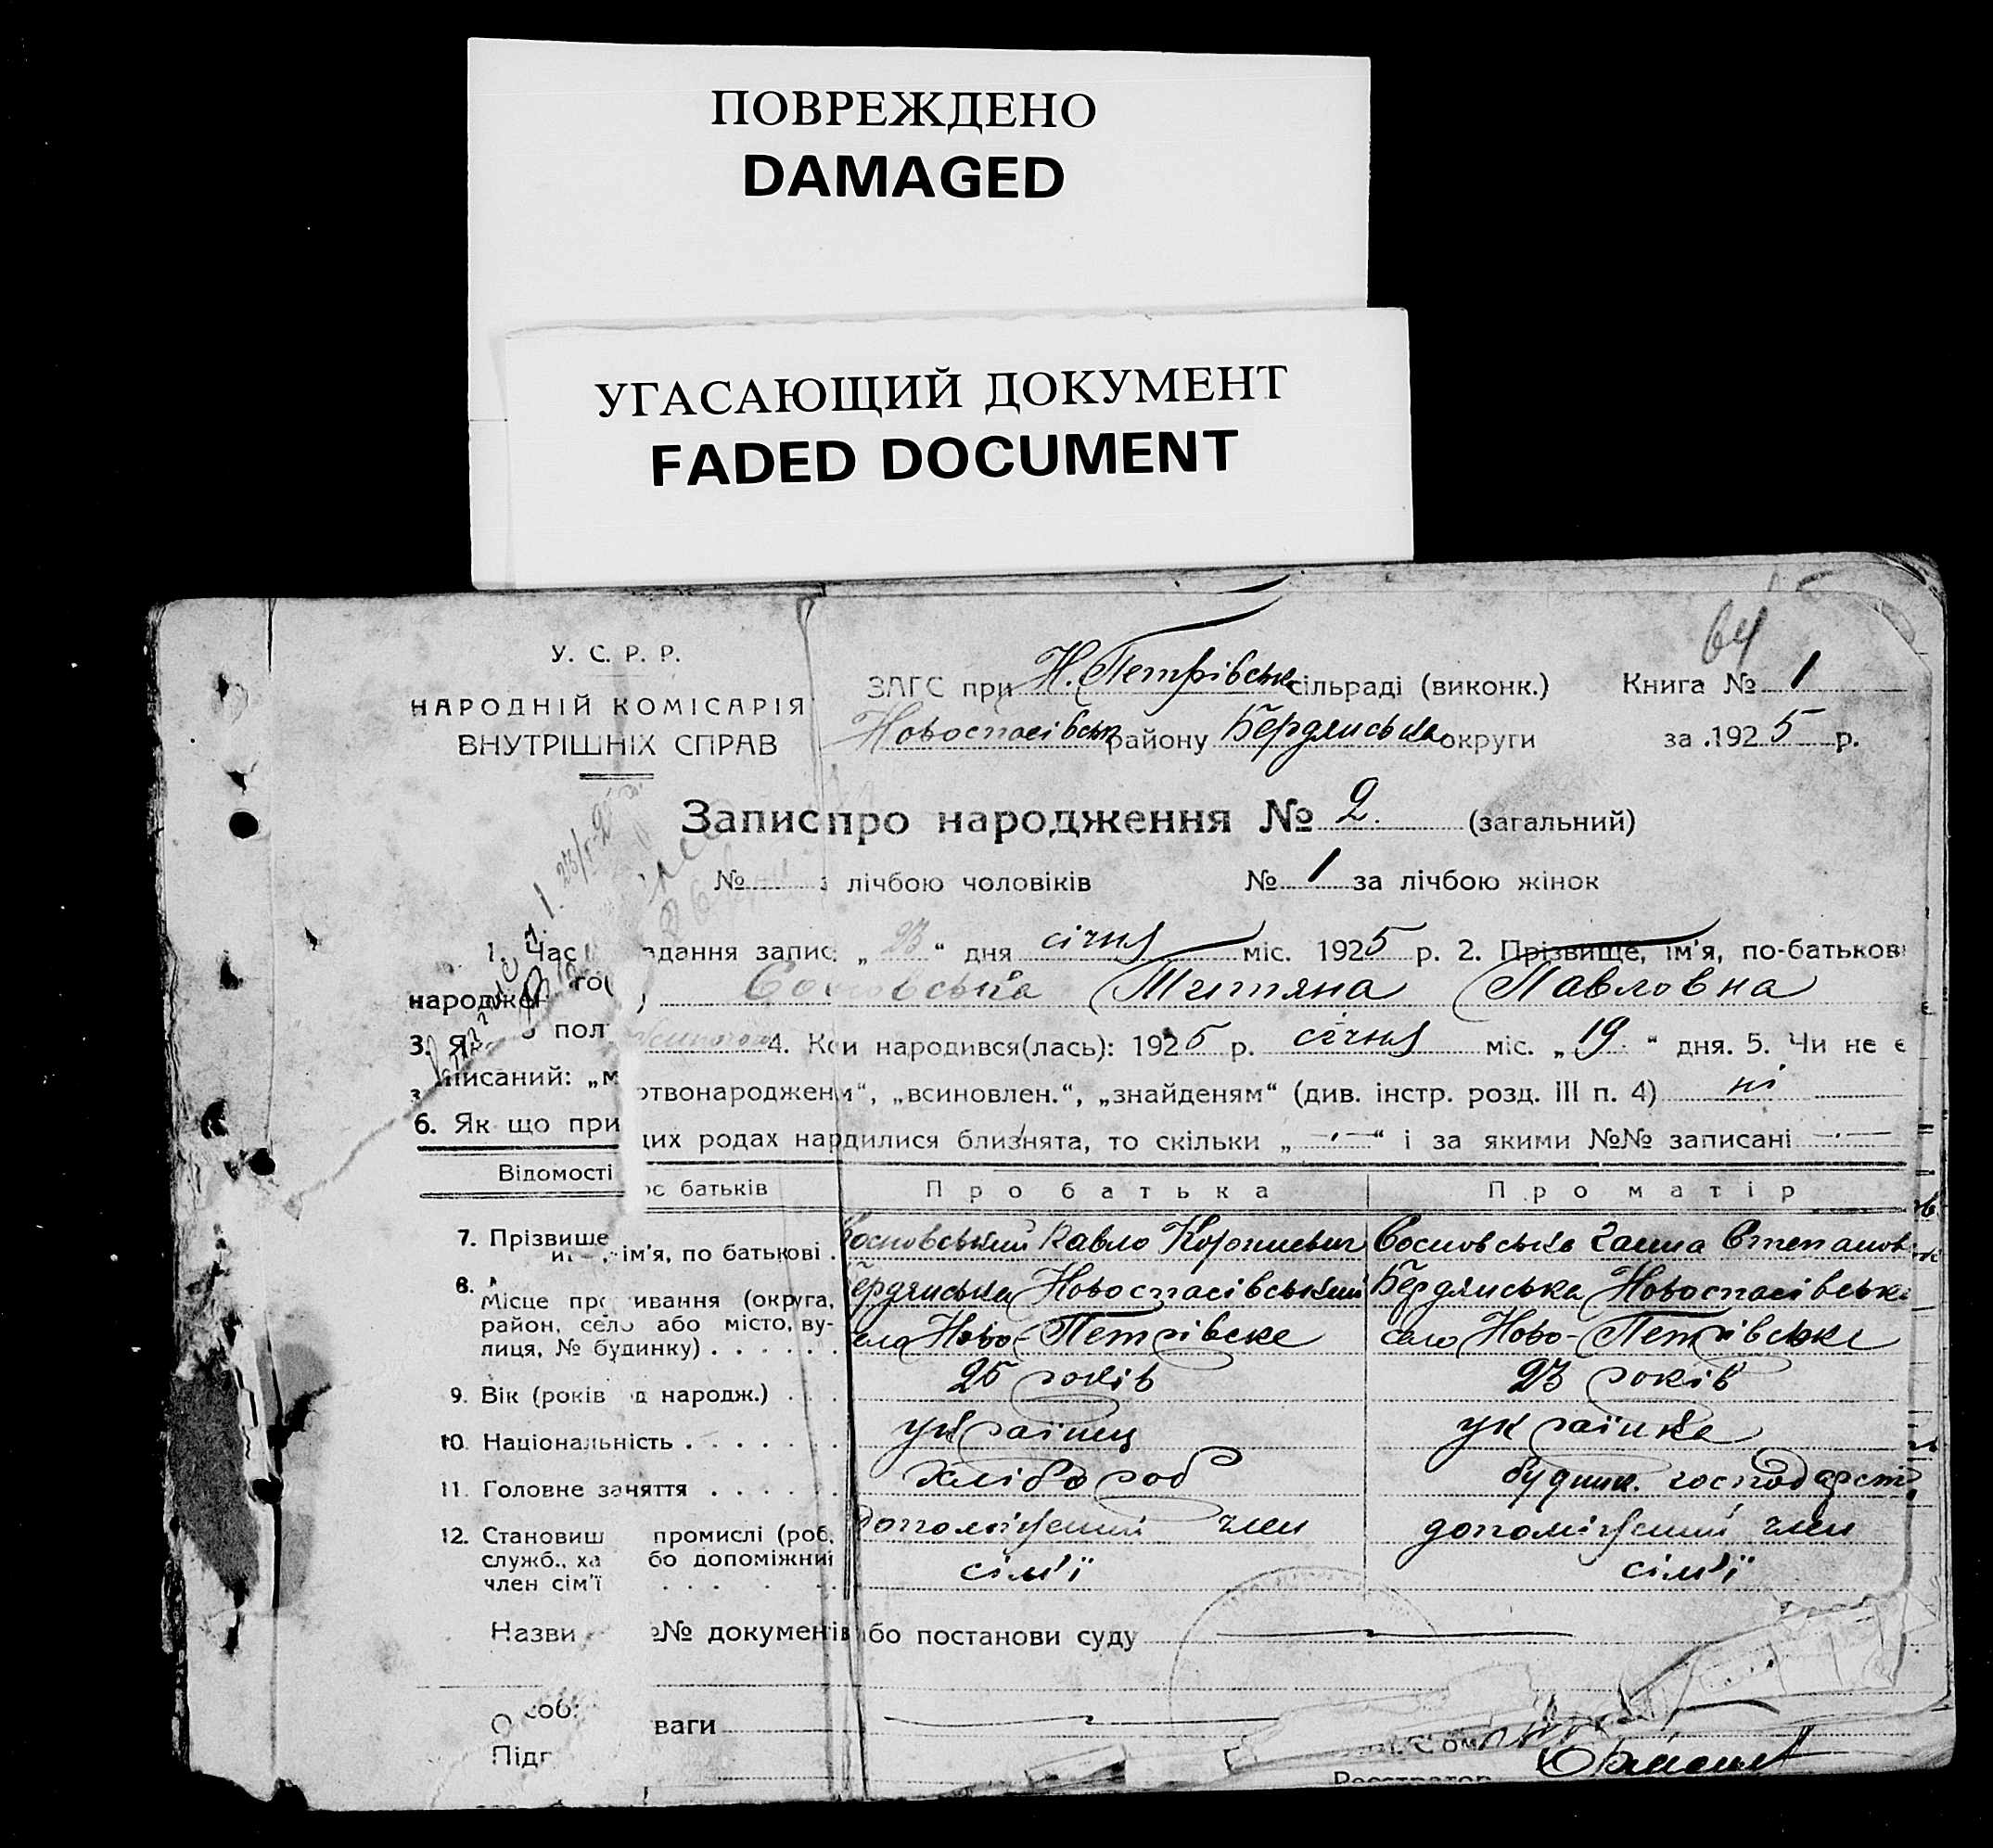 ПОВРЕЖДЕНО
DAMAGED
УГАСАЮЩИЙ ДОКУМЕНТ
FADED DOCUMENT
64
У. С. Р. Р.
НАРОДНІЙ КОМІСАРІЯ
ВНУТРІШНІХ СПРАВ
ЗАГС при Н. Петрівськ сільраді (виконк.) Книга № 1
Новоспасівськ району Бердянська округи за 1925 р.
Запис про народження № 2. (загальний)
№ з лічбою чоловіків № 1 за лічбою жінок
1. Час адання запис „23“ дня січня міс. 1925 р. 2. Прізвище, ім'я, по-батькові
народже го Сосновська Титяна Павловна
3. Як пол 4. Коли народився(лась): 1925 р. січня міс. „19“ дня. 5. Чи не є
записаний: „м ртвонароджени“, „всиновлен.“, „знайденям“ (див. інстр. розд. III п. 4) ні
6. Як що при цих родах нардилися близнята, то скільки „—“ і за якими №№ записані —
Відомості ос батьків Про батька Про матір
7. Прізвище, ім'я, по батькові . Сосновський Павло Корнієвич Сосновська Ганна Степанов
8. Місце про ивання (округа, Бердянська Новоспасівський Бердянська Новоспасівськ
район, село або місто, ву- села Ново-Петрівске село Ново-Петрівське
лиця, № будинку) . . . . . .
9. Вік (років д народж.) . . . 25 років 23 років
10. Національність . . . . . . . українец українка
11. Головне заняття . . . . . . хлібороб будинк. господарст.
12. Становищ промислі (роб. допоміжний член допоміжний член
служб., ха бо допоміжний сім'ї сім'ї
член сім'ї . . . . .
Назви №№ документів або постанови суду
Особ ваги
Підп
Реєстратор